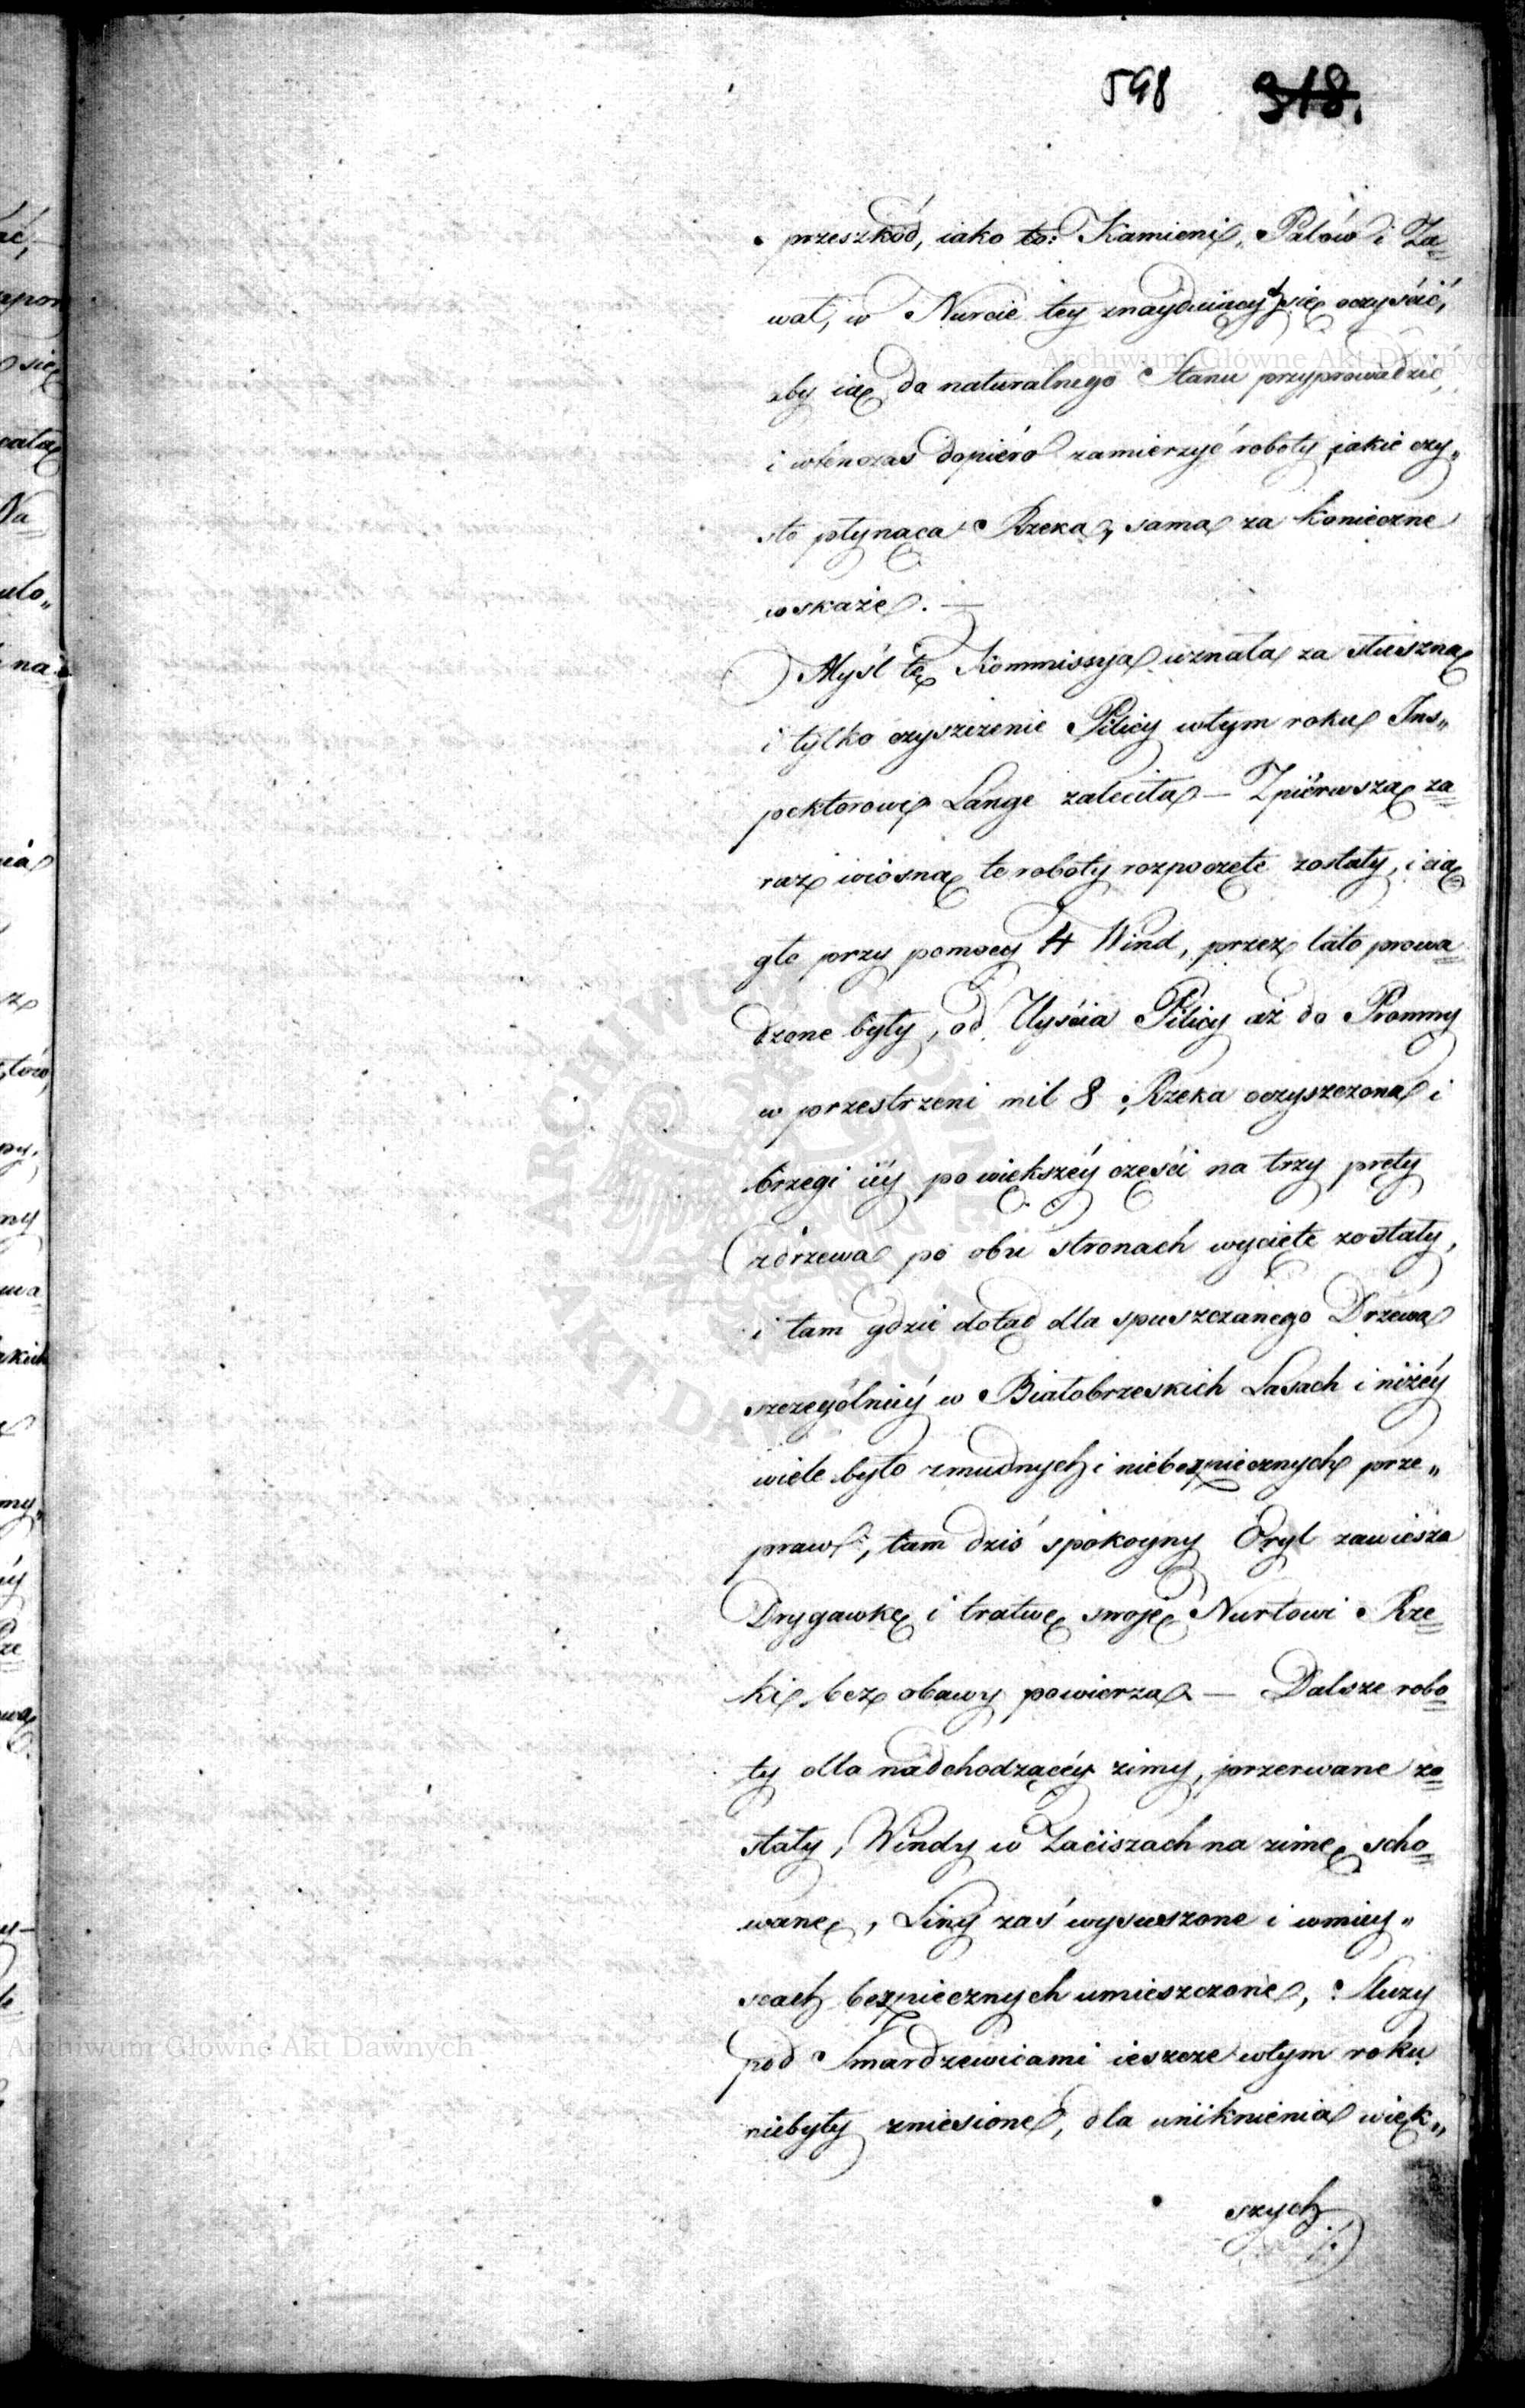 598 318.
przeszkód, iako to: Kamieni, Palów i Za=
wał, w Nurcie tey znayduiących się oczyścić,
aby ią do naturalnego Stanu przyprowadzić,
i wtenczas dopiéro zamierzyć roboty, jakie czy„
sto płynąca Rzeka, sama za konieczne
wskaże. —
Myśl tę Kommissya uznała za słuszną
i tylko czyszczenie Pilicy w tym roku Ins„
pektorowi Lange zaleciła — Z piérwszą za=
raz wiosną te roboty rozpoczęte zostały, i cią=
gle przy pomocy 4 Wind, przez lato prowa=
dzone były, od Uyścia Pilicy aż do Promny
w przestrzeni mil 8, Rzeka oczyszczona i
brzegi iéy po większéy części na trzy pręty
z drzewa po obu stronach wycięte zostały,
i tam gdzie dotąd dla spuszczanego Drzewa
szczególniéy w Białobrzeskich Lasach i niżéy
wiele było zmudnych i niebezpiecznych prze„
praw, tam dziś spokoyny Oryl zawiesza
Drygawkę i tratwę swoję Nurtowi Rze=
ki bez obawy powierza — Dalsze robo=
ty dla nadchodzącéy zimy, przerwane zo=
stały, Windy w Zaciszach na zimę scho=
wane, Liny zaś wysuszone i w miey„
scach bezpiecznych umieszczone, Śluzy
pod Smardzewicami ieszcze w tym roku
niebyły zniesione, dla uniknienia więk„
szych
Archiwum Główne Akt Dawnych
Archiwum Główne Akt Dawnych
ARCHIWUM GŁÓWNE AKT DAWNYCH